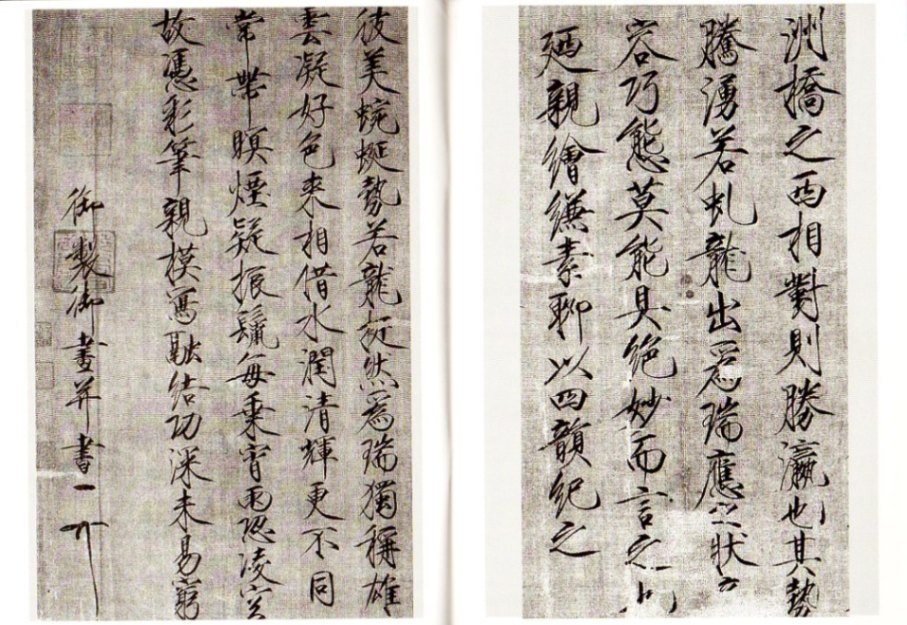 洲橋之西相對則勝瀛也其勢
騰湧若虬龍出爲瑞應之狀
容巧態莫能具絶妙而言之
廼親繪縑素聊以四韻紀之
彼美蜿蜒勢若龍挺然爲瑞獨稱雄
雲凝好色来相借水潤清輝更不同
常帶暝煙疑振鬣每乘宵雨恐凌空
故憑彩筆親模寫融結功深未易窮
御製御畫并書